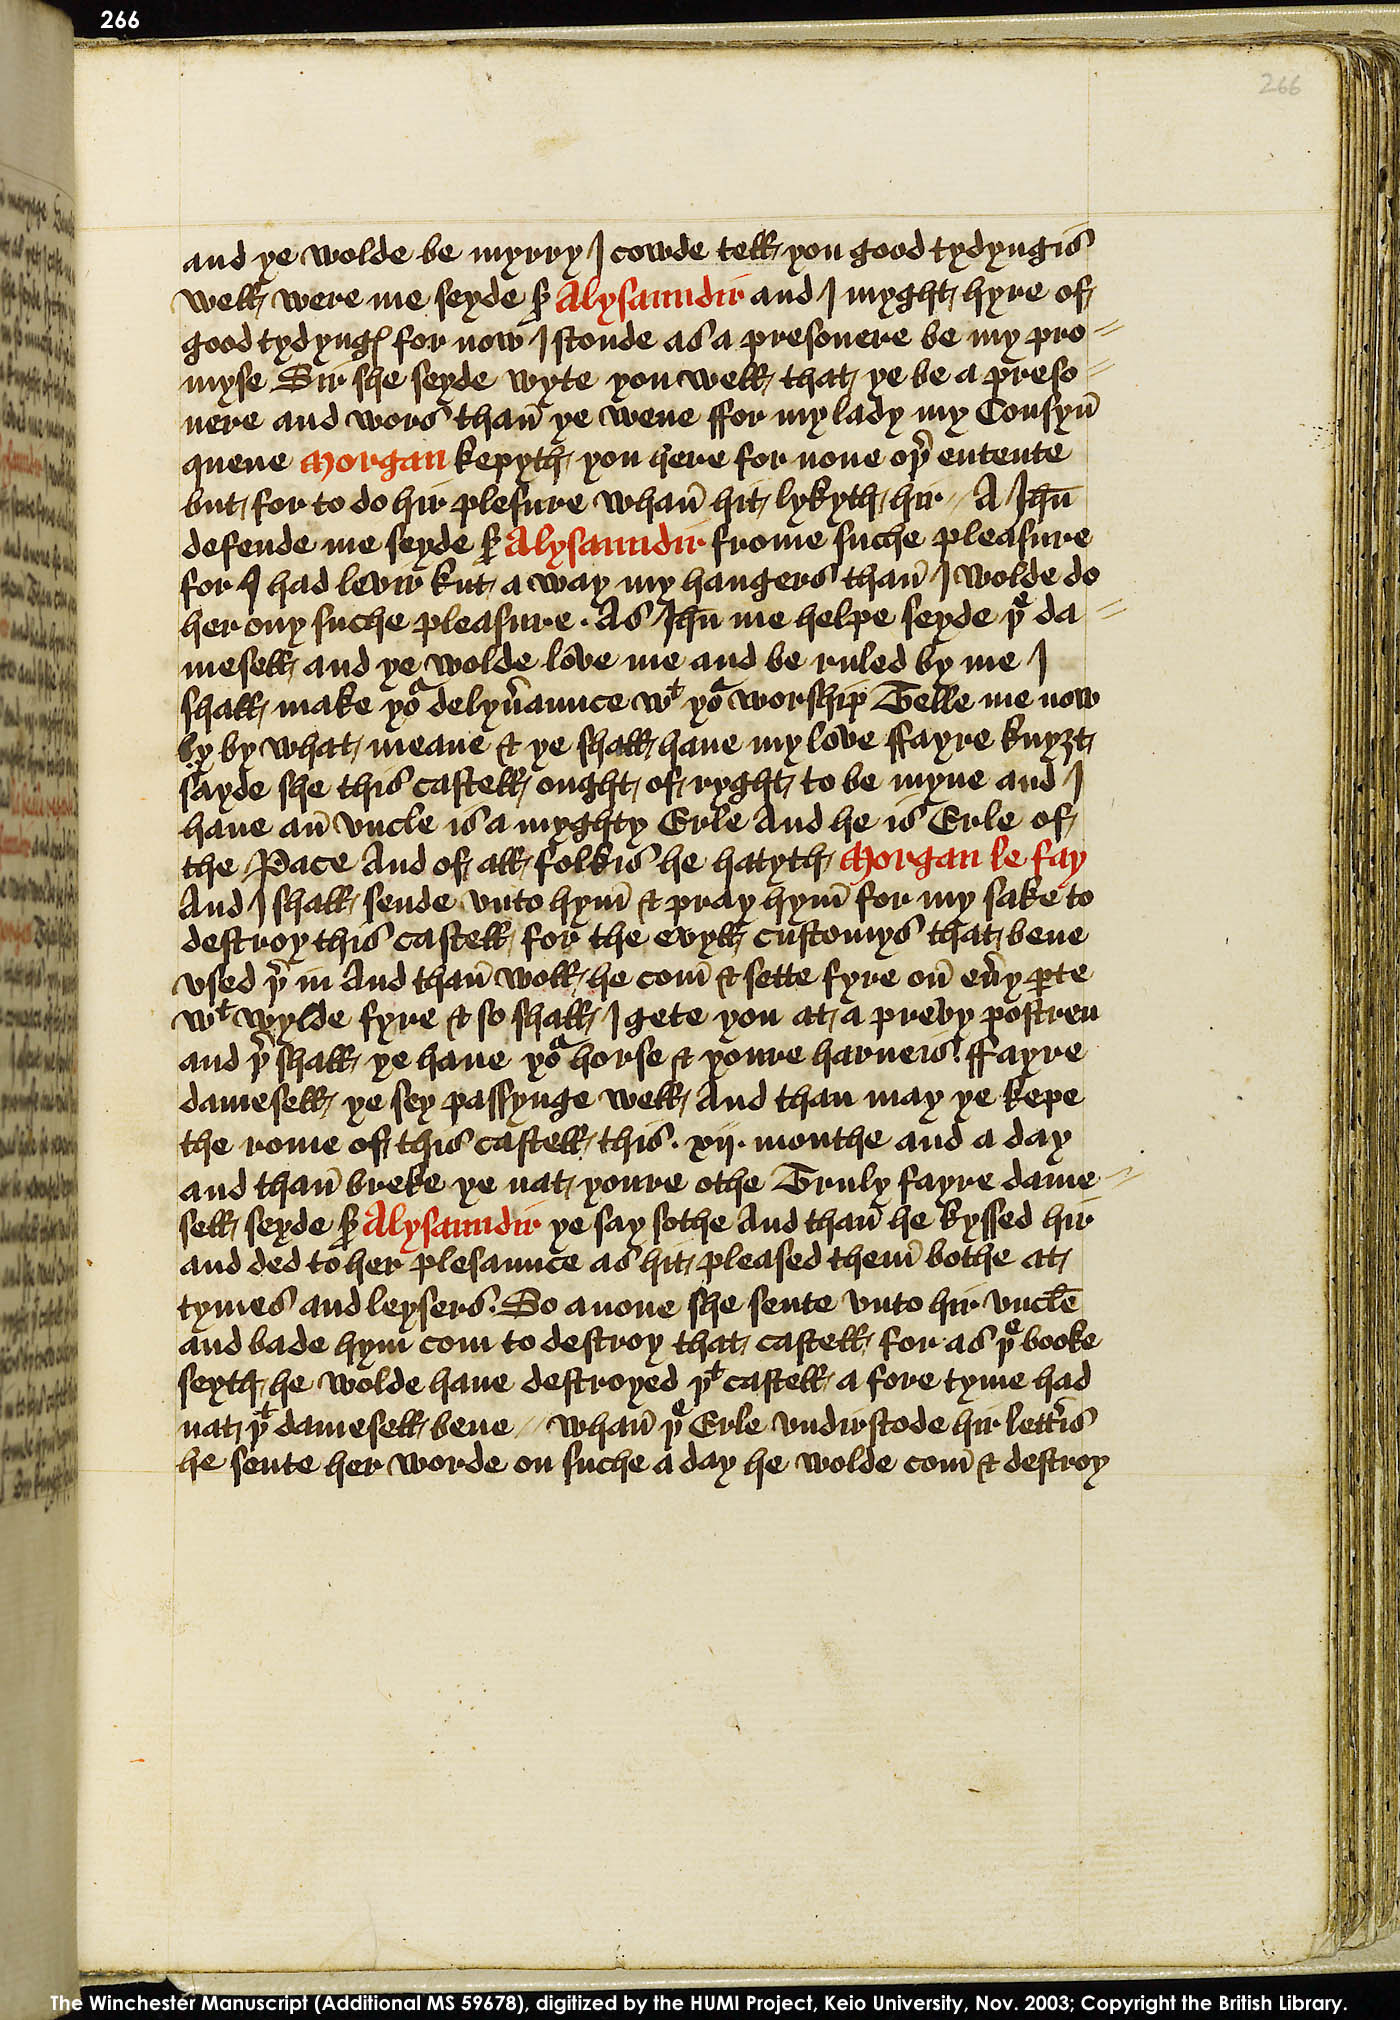 266
266
and ye wolde be myrry I cowde tell you good tydyngis
Well were me seyde sʳ Alysaundir and I myght hyre of
good tydyngꝭ for now I stonde as a presonere be my pro⸗
myse Sir she seyde wyte you well that ye be a preso⸗
nere and wors than̄ ye wene ffor my lady my Cousyn̄
quene Morgan kepyth you here for none oþʳ entente
but for to do hir plesure whan̄ hit lykyth hir // A Ihū
defende me seyde sʳ Alysaundir frome suche pleasure
for I had levir kut a way my hangers than̄ I wolde do
her ony suche pleasure . As Ihū me helpe seyde þᵉ da⸗
mesell and ye wolde love me and be ruled by me I
shall make yoʳ delyūaunce wᵗ yoʳ worship Telle me now
by by what meane & ye shall haue my love ffayre knyȝt
sayde she this castell ought of ryght to be myne and I
haue an̄ vncle is a myghty Erle And he is Erle of
the Pace And of all folkis he hatyth Morgan le fay
And I shall sende vnto hym̄ & pray hym̄ for my sake to
destroy this castell for the evyll customys that bene
vsed þʳ in And than̄ woll he com̄ & sette fyre on̄ eūy ꝑte
wᵗ wylde fyre & so shall I gete you at a prevy postren
and þʳ shall ye haue yoʳ horse & youre harneis . ffayre
damesell ye sey passynge well And than may ye kepe
the rome of this castell this . xij . monthe and a day
and than̄ breke ye nat youre othe Truly fayre dame⸗
sell seyde sʳ Alysaundir ye say sothe And than̄ he kyssed hir
and ded to her plesaunce as hit pleased them̄ bothe at
tymes and leysers . So anone she sente vnto hir vncle
and bade hym com to destroy that castell for as þᵉ booke
seyth he wolde haue destroyed þᵗ castell a fore tyme had
nat þᵗ damesell bene // Whan̄ þᵉ Erle vndirstode hir lettʳis
he sente her worde on suche a day he wolde com̄ & destroy
The Winchester Manuscript (Additional MS 59678), digitized by the HUMI Project, Keio University, Nov. 2003; Copyright the British Library.